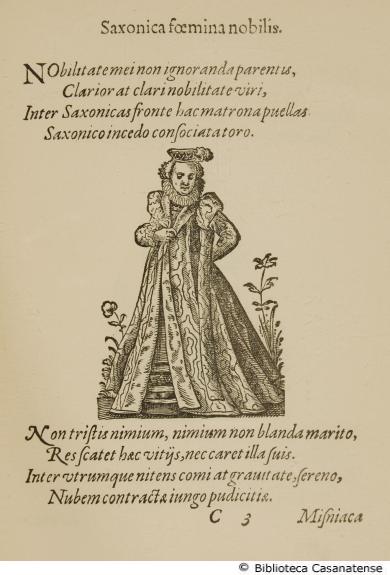 Saxonica fœmina nobilis.
NObilitate mei non ignoranda parentis,
Clarior at clari nobilitate viri,
Inter Saxonicas fronte hac matrona puellas
Saxonico incedo consociata toro.
Non tristis nimium, nimium non blanda marito,
Res scatet hæc vitijs, nec caret illa suis.
Inter vtrumque nitens comi at grauitate, sereno,
Nubem contractæ iungo pudicitiæ.
C 3 Misniaca
© Biblioteca Casanatense